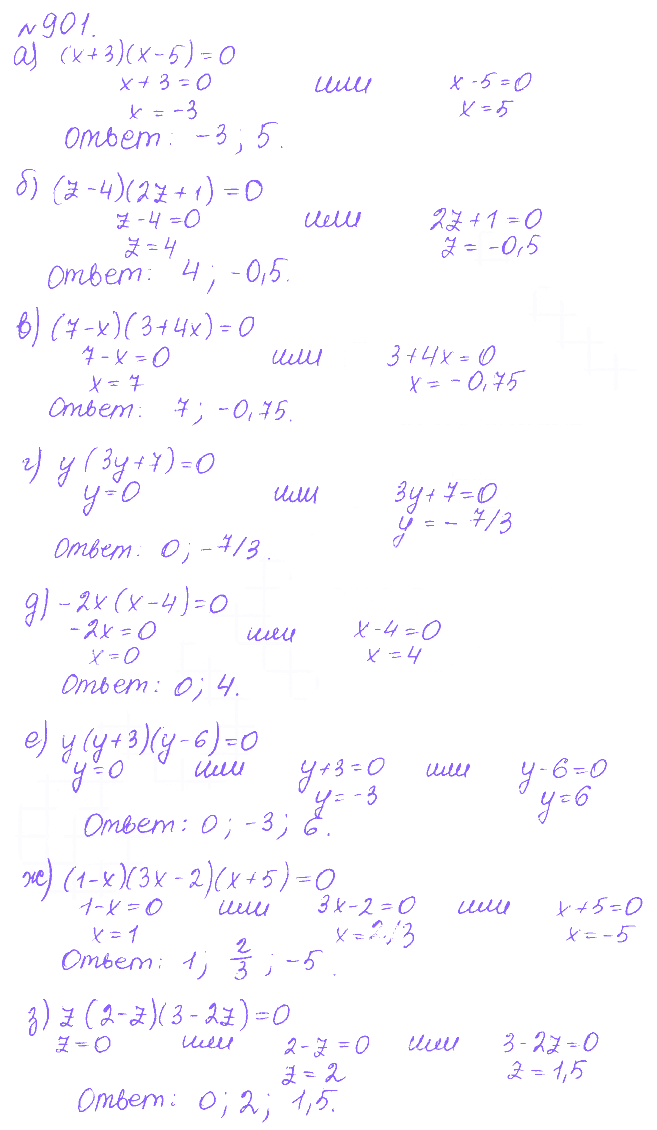 №901.
а) (x+3)(x-5)=0
x+3=0 или x-5=0
x=-3 x=5
Ответ: -3; 5.
б) (z-4)(2z+1)=0
z-4=0 или 2z+1=0
z=4 z=-0,5
Ответ: 4; -0,5.
в) (7-x)(3+4x)=0
7-x=0 или 3+4x=0
x=7 x=-0,75
Ответ: 7; -0,75.
г) y(3y+7)=0
y=0 или 3y+7=0
y=-7/3
Ответ: 0; -7/3.
д) -2x(x-4)=0
-2x=0 или x-4=0
x=0 x=4
Ответ: 0; 4.
е) y(y+3)(y-6)=0
y=0 или y+3=0 или y-6=0
y=-3 y=6
Ответ: 0; -3; 6.
ж) (1-x)(3x-2)(x+5)=0
1-x=0 или 3x-2=0 или x+5=0
x=1 x=2/3 x=-5
Ответ: 1; 2/3; -5.
з) z(2-z)(3-2z)=0
z=0 или 2-z=0 или 3-2z=0
z=2 z=1,5
Ответ: 0; 2; 1,5.